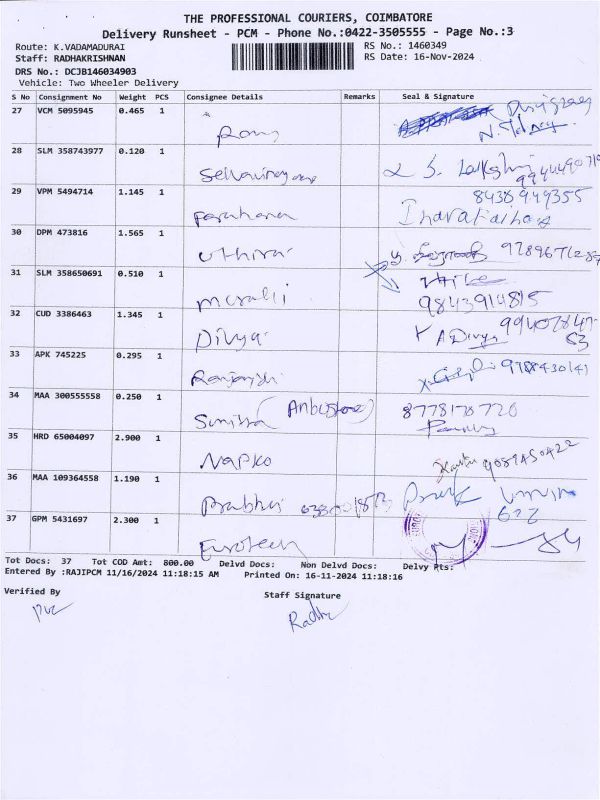 THE PROFESSIONAL COURIERS, COIMBATORE
Delivery Runsheet - PCM - Phone No.:0422-3505555 - Page No.:3
Route: K.VADAMADURAI
RS No.: 1460349
Staff: RADHAKRISHNAN
RS Date: 16-Nov-2024
DRS No.: DCJB146034903
Vehicle: Two Wheeler Delivery
S No Consignment No Weight PCS Consignee Details Remarks Seal & Signature
27 VCM 5095945 0.465 1
28 SLM 358743977 0.120 1
29 VPM 5494714 1.145 1 8438949355
Farahana
30 DPM 473816 1.565 1
Uthira
31 SLM 358650691 0.510 1
Murali 9843914815
32 CUD 3386463 1.345 1
Divya A Divya
33 APK 745225 0.295 1
Ranjani
34 MAA 300555558 0.250 1 8778170720
35 HRD 65004097 2.900 1
Napko 9089450422
36 MAA 109364558 1.190 1
Prabhu
37 GPM 5431697 2.300 1
Eurotech
Tot Docs: 37 Tot COD Amt: 800.00 Delvd Docs: Non Delvd Docs: Delvy Pts:
Entered By :RAJIPCM 11/16/2024 11:18:15 AM Printed On: 16-11-2024 11:18:16
Verified By
Staff Signature
Radha